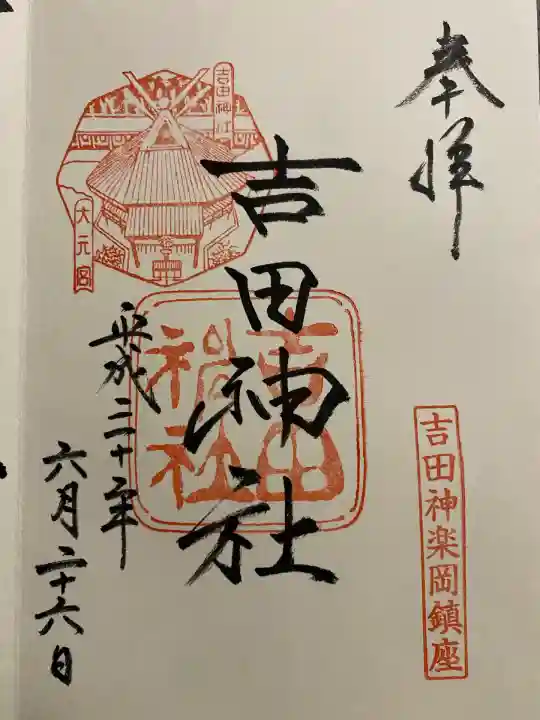 奉拝
吉田神楽岡鎮座
吉田神社
吉田神社
吉田神社
大元宮
平成三十年
六月二十六日